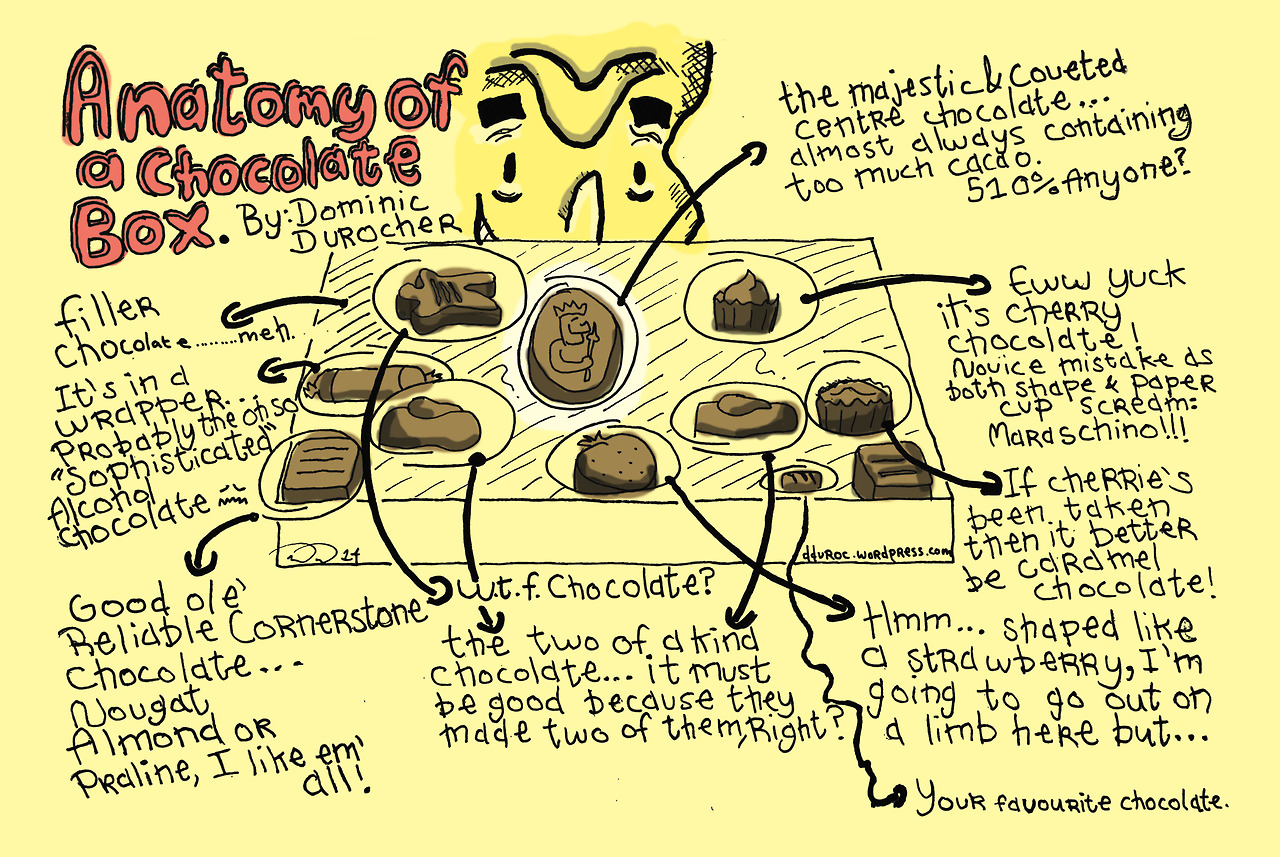 Anatomy of
a Chocolate
Box.
By: Dominic
Durocher
the majestic & coveted
centre chocolate...
almost always containing
too much cacao.
510% Anyone?
filler
chocolate.........meh.
It's in a
wrapper...
Probably the oh so
"Sophisticated"
Alcohol
chocolate
Eww yuck
it's cherry
chocolate!
Novice mistake as
both shape & paper
cup scream:
Maraschino!!!
If cherrie's
been taken
then it better
be caramel
chocolate!
14
dduroc.wordpress.com
Good ole'
Reliable Cornerstone
chocolate...
Nougat,
Almond or
Praline, I like em'
all!
w.t.f. Chocolate?
the two of a kind
chocolate... it must
be good because they
made two of them, Right?
Hmm... shaped like
a strawberry, I'm
going to go out on
a limb here but...
Your favourite chocolate.